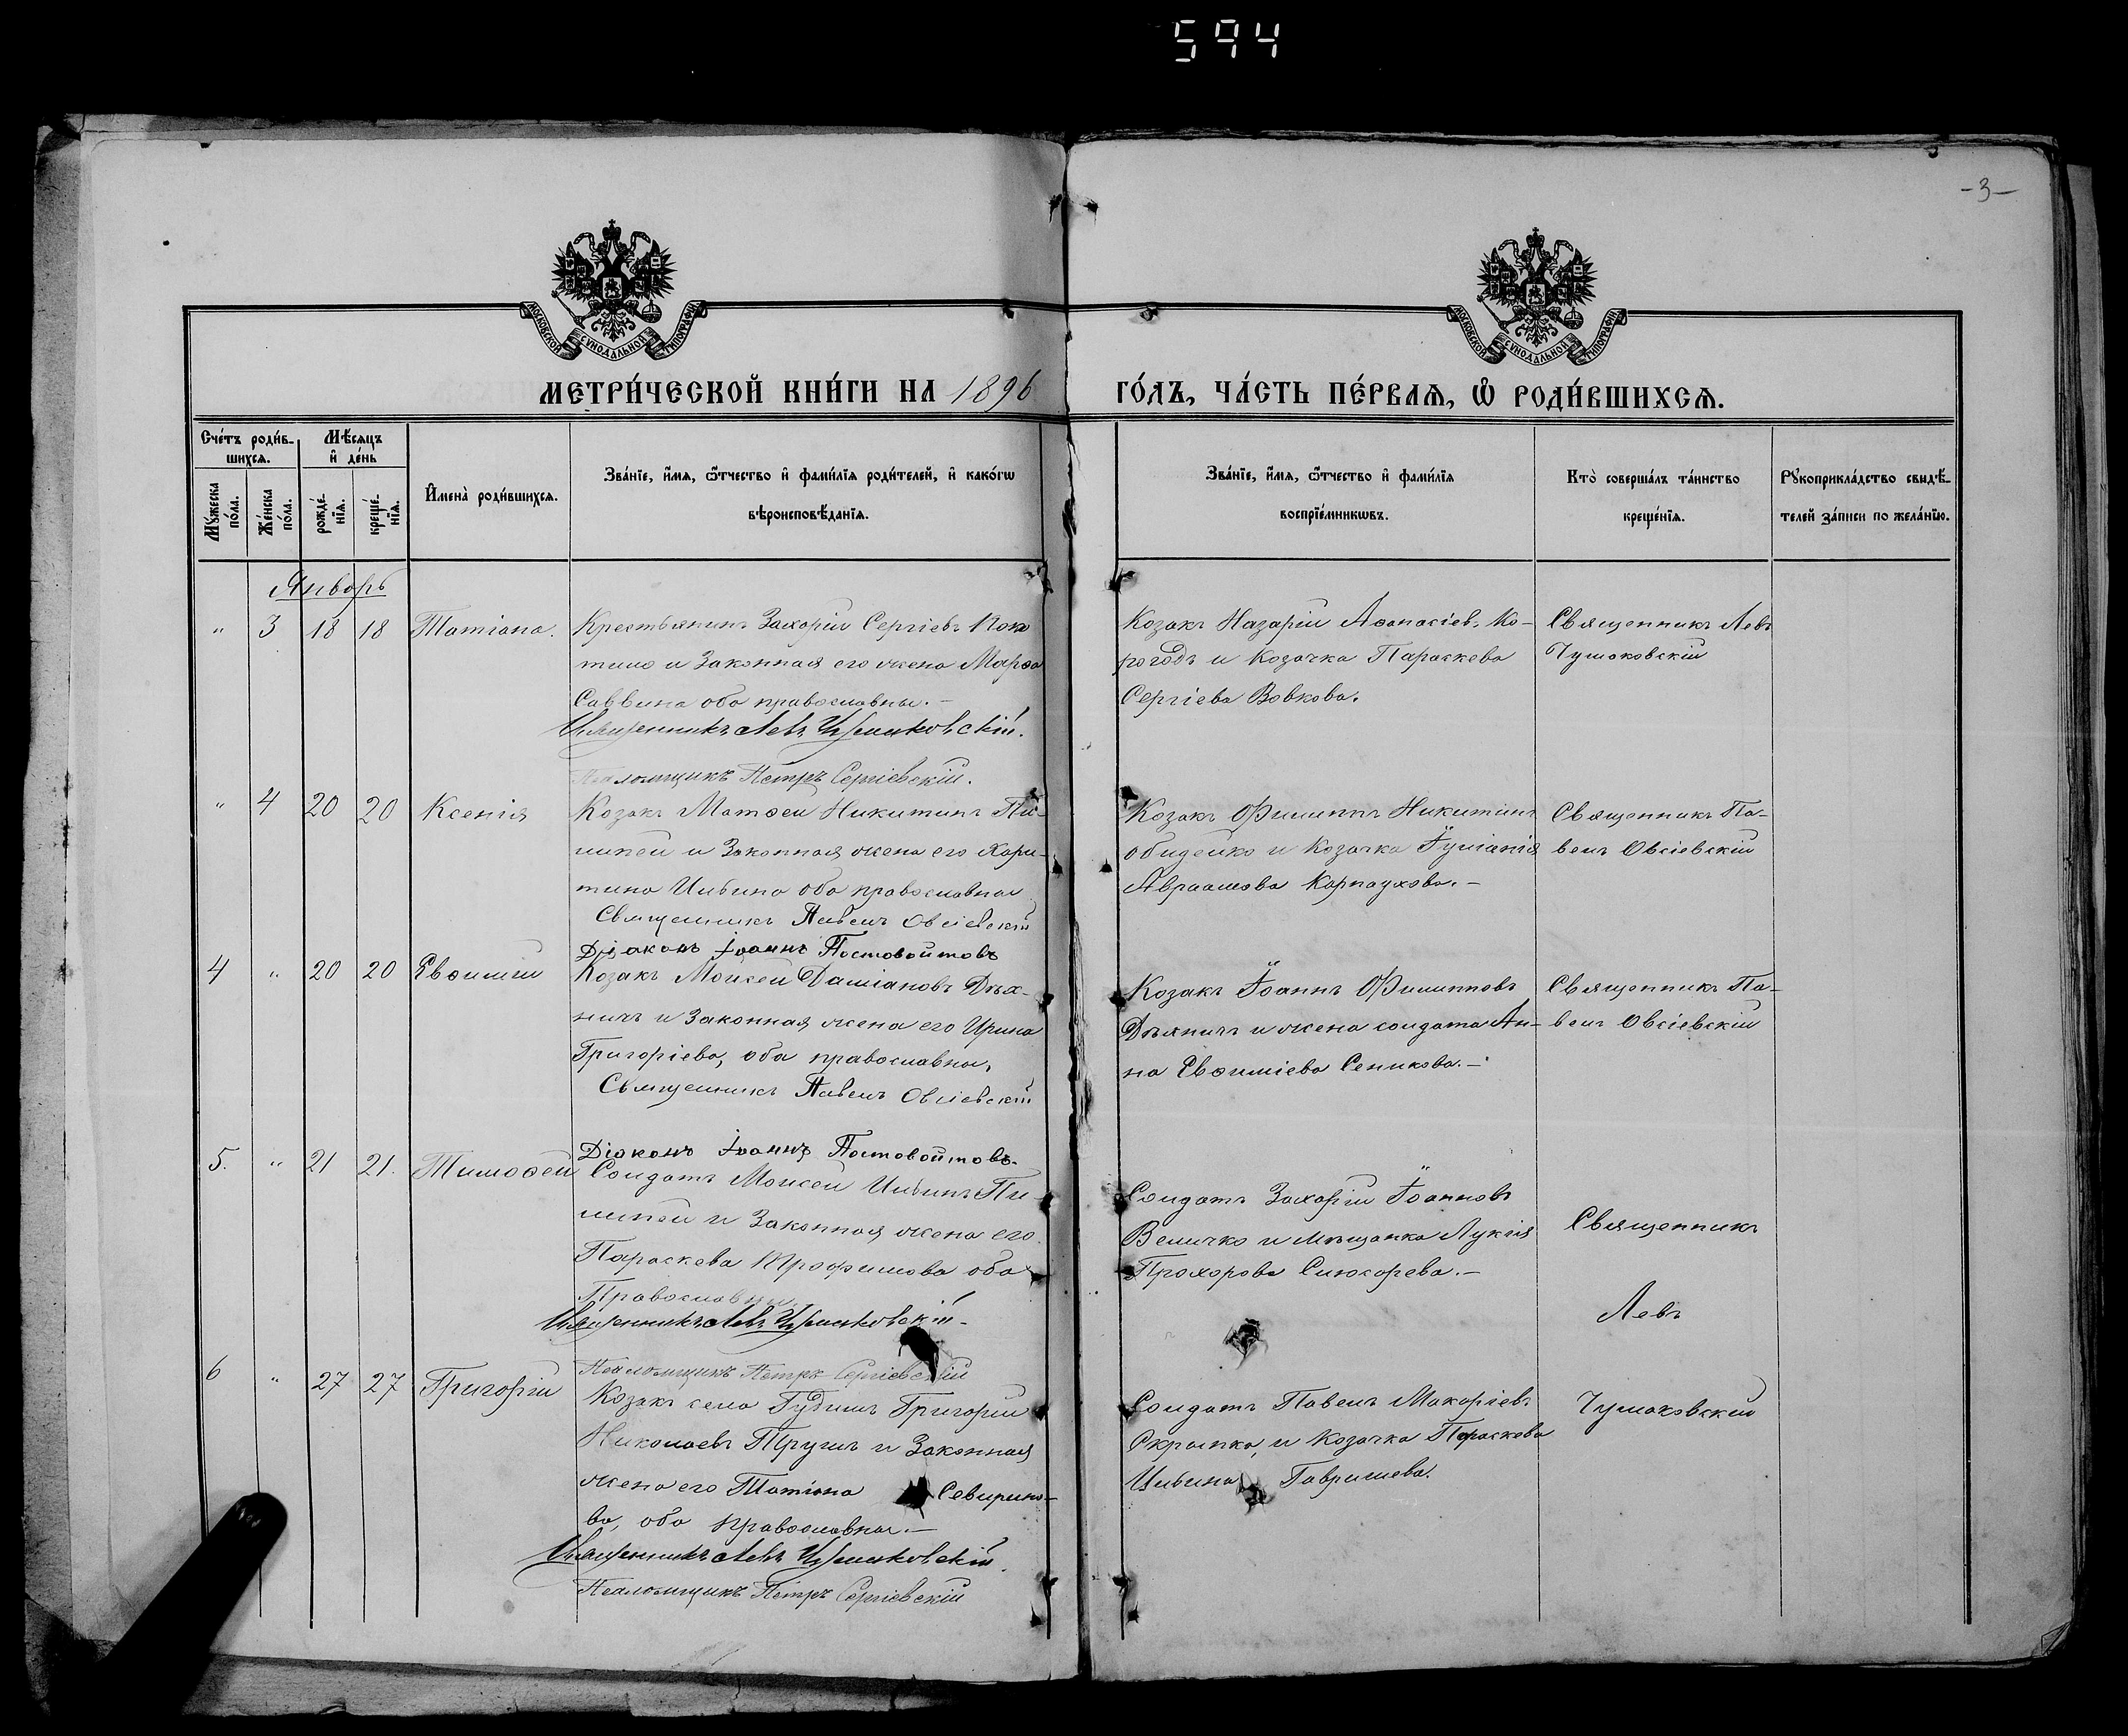 594
-3-
МОСКОВСКОЙ СѴНОДАЛЬНОЙ ТИПОГРАФІИ
МОСКОВСКОЙ СѴНОДАЛЬНОЙ ТИПОГРАФІИ
МЕТРИ́ЧЕСКОЙ КНИ́ГИ НА 1896
ГО́ДЪ, ЧА́СТЬ ПЕ́РВАѦ, Ѡ РОДИ́ВШИХСѦ.
Сче́тъ роди́в-
шихсѧ.
Мѣ́сѧцъ
и҆ де́нь
Мꙋ́жеска
по́ла.
Же́нска
по́ла.
рожде́-
нїѧ.
креще́-
нїѧ.
И҆мена̀ роди́вшихсѧ.
Зва́нїе, и҆́мѧ, ѻ҆́тчество и҆ фами́лїѧ роди́телей, и҆ како́гѡ
вѣроисповѣ́данїѧ.
Зва́нїе, и҆́мѧ, ѻ҆́тчество и҆ фами́лїѧ
воспрїе́мникѡвъ.
Кто̀ соверша́лъ та́инство
креще́нїѧ.
Рꙋкоприкла́дство свидѣ́-
телей за́писи по жела́нїю.
Январь
" 3 18 18 Татіана.
Крестьянинъ Захарій Сергіевъ
и Законная его жена Марѳа
Саввина оба православны.-
Священникъ Левъ Чумаковскій.
Псаломщикъ Петръ Сергіевскій.
Козакъ Назарій Аѳанасіев. Ко-
рогодъ и Козачка Параскева
Сергіева Вовкова.
Священникъ Левъ
Чумаковскій
" 4 20 20 Ксенія
Козакъ Матѳей Никитинъ Пи-
липей и Законная жена его Хари-
тина Ильина оба православны
Священникъ Павелъ Овсіевскій
Діаконъ Іоаннъ Постовойтовъ
Козакъ Филиппъ Никитинъ
Обидейко и Козачка Іуліанія
Авраамова Карпаухова.-
Священникъ Па-
велъ Овсіевскій
4 " 20 20 Евѳимій
Козакъ Моисей Даміановъ Дѣх-
ничъ и Законная жена его Ирина
Григоріева, оба православны,
Священникъ Павелъ Овсіевскій
Діаконъ Іоаннъ Постовойтовъ.
Козакъ Іоаннъ Филипповъ
Дѣхничъ и жена солдата Ан-
на Евѳиміева Сеникова.-
Священникъ Па-
велъ Овсіевскій
5. " 21 21. Тимоѳей
Солдатъ Моисей Ильинъ Пи-
липей и Законная жена его
Параскева Трофимова оба
Православны.
Священникъ Левъ Чумаковскій-
Псаломщикъ Петръ Сергіевскій
Солдатъ Захарій Іоанновъ
Величко и мѣщанка Лукія
Прохорова Слюсарева.-
Священникъ
Левъ
Чумаковскій
6 " 27 27 Григорій
Козакъ села Гудимъ Григорій
Николаевъ и Законная
жена его Татіана Северино-
ва, оба православны.-
Священникъ Левъ Чумаковскій.
Псаломщикъ Петръ Сергіевскій
Солдатъ Павелъ Макаріевъ
Скрыпка, и Козачка Параскева
Ильина Гаврилева.